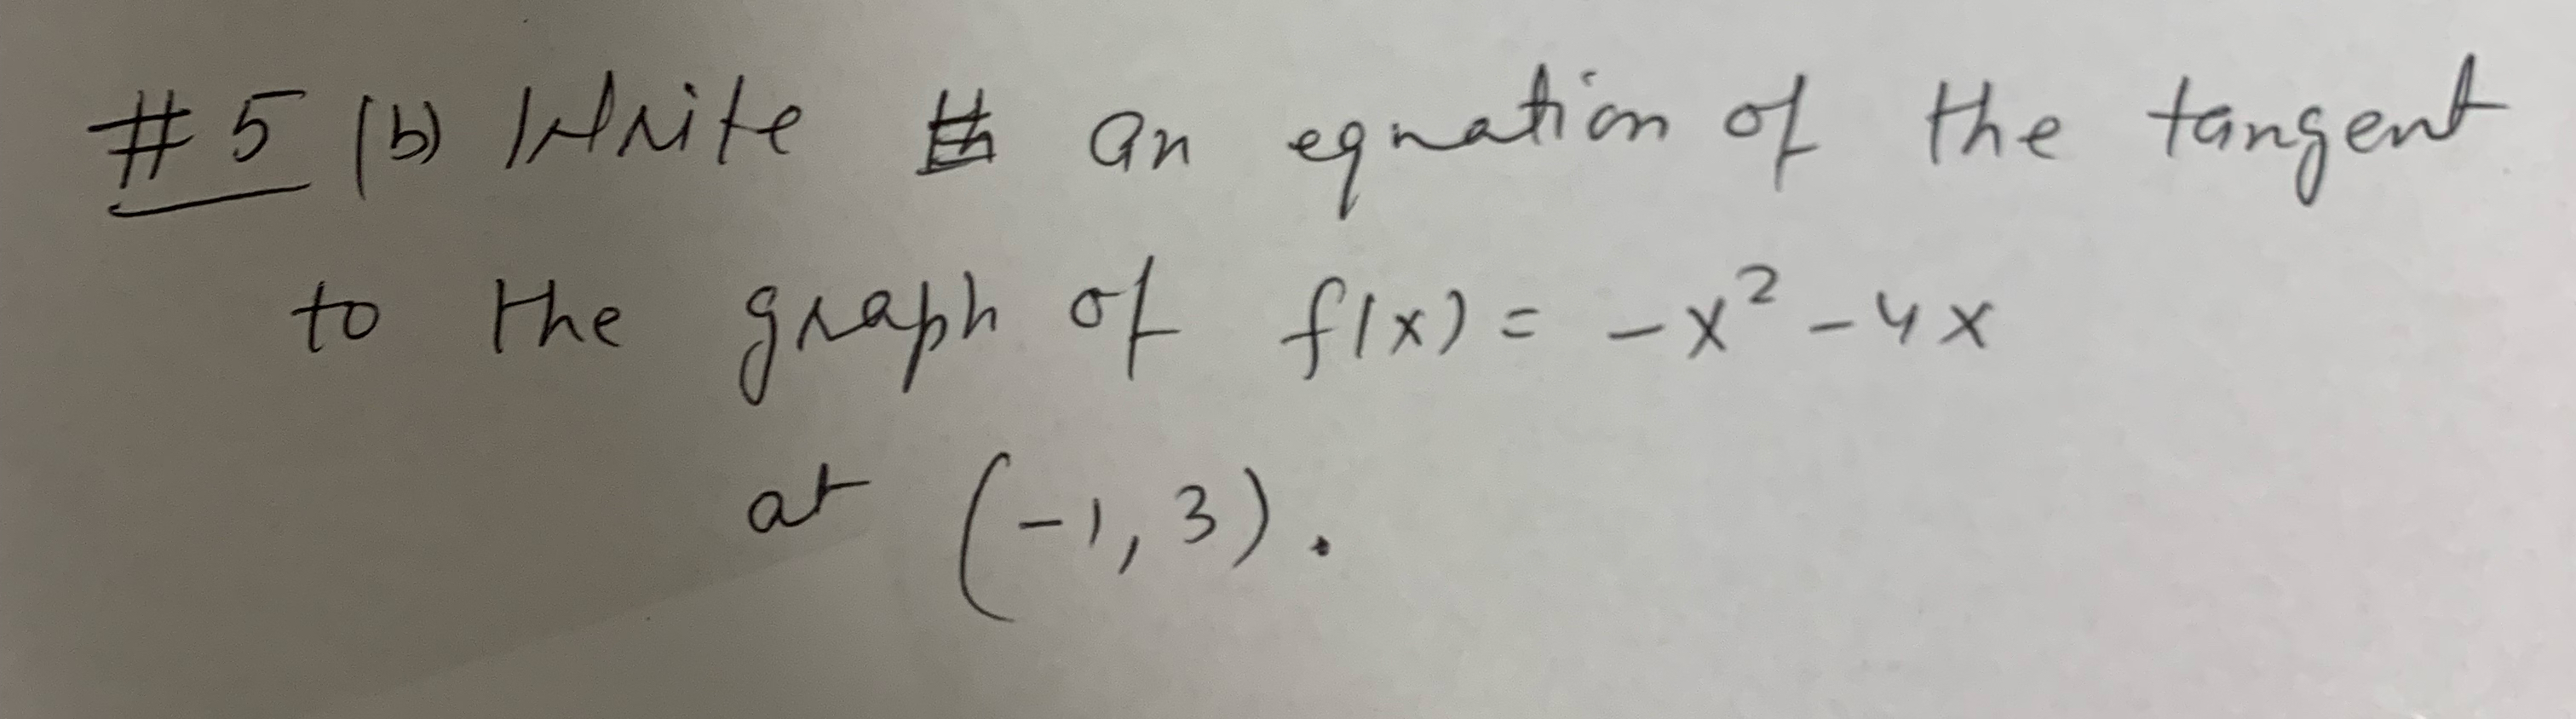 #5 (b) Write an equation of the tangent
to the graph of f(x) = -x² - 4x
at (-1, 3).